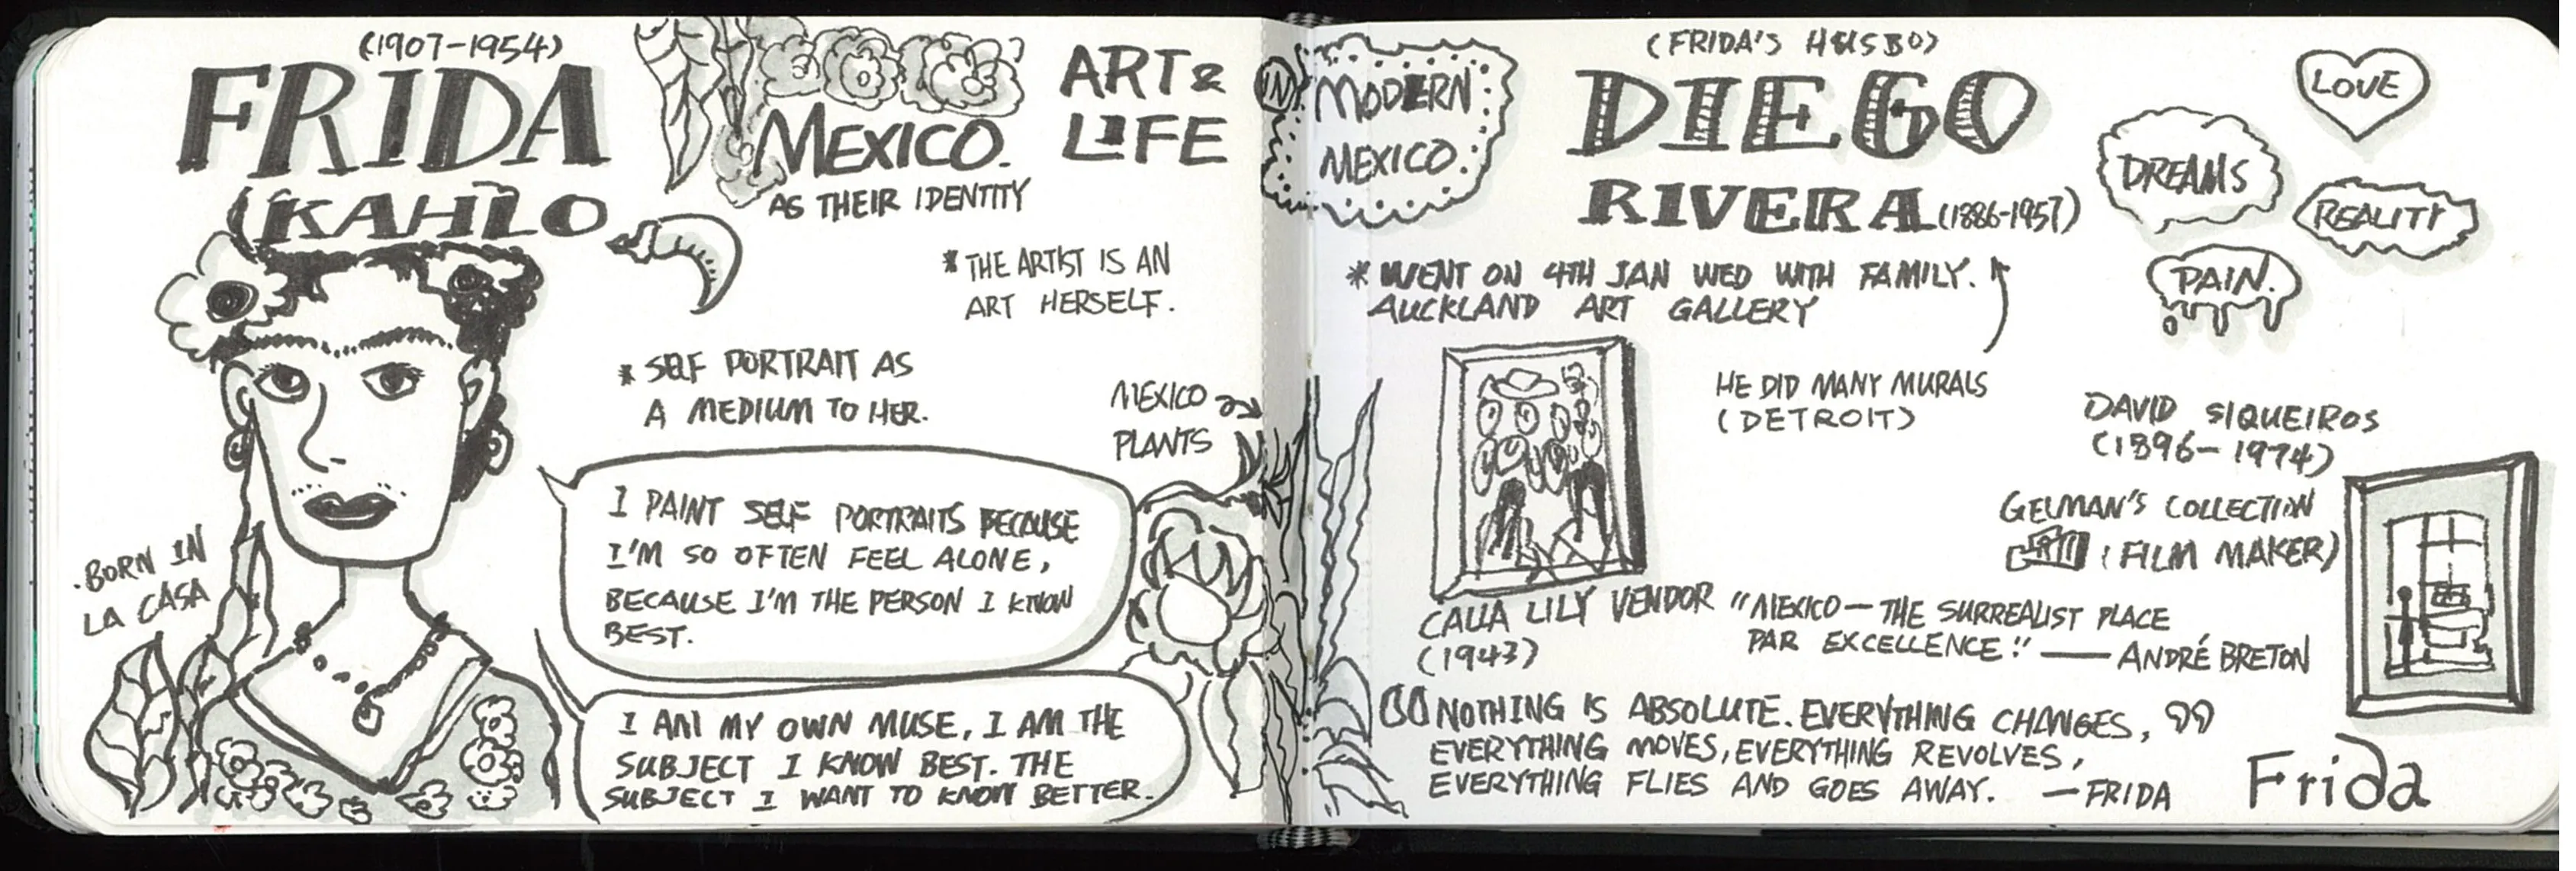 (1907-1954)
FRIDA
(KAHLO
MEXICO.
AS THEIR IDENTITY
ART &
LIFE
IN
MODERN
MEXICO
* THE ARTIST IS AN
ART HERSELF.
* SELF PORTRAIT AS
A MEDIUM TO HER.
MEXICO
PLANTS
I PAINT SELF PORTRAITS BECAUSE
I'M SO OFTEN FEEL ALONE,
BECAUSE I'M THE PERSON I KNOW
BEST.
. BORN IN
LA CASA
I AM MY OWN MUSE, I AM THE
SUBJECT I KNOW BEST. THE
SUBJECT I WANT TO KNOW BETTER.
(FRIDA'S HUSBD)
DIEGO
RIVERA (1886-1957)
LOVE
DREAMS
REALITY
PAIN.
* WENT ON 4TH JAN WED WITH FAMILY.
AUCKLAND ART GALLERY
HE DID MANY MURALS
(DETROIT)
DAVID SIQUEIROS
(1896-1974)
GELMAN'S COLLECTION
(FILM MAKER)
CALLA LILY VENDOR
(1943)
"MEXICO — THE SURREALIST PLACE
PAR EXCELLENCE." — ANDRÉ BRETON
“NOTHING IS ABSOLUTE. EVERYTHING CHANGES, ”
EVERYTHING MOVES, EVERYTHING REVOLVES,
EVERYTHING FLIES AND GOES AWAY. — FRIDA
Frida